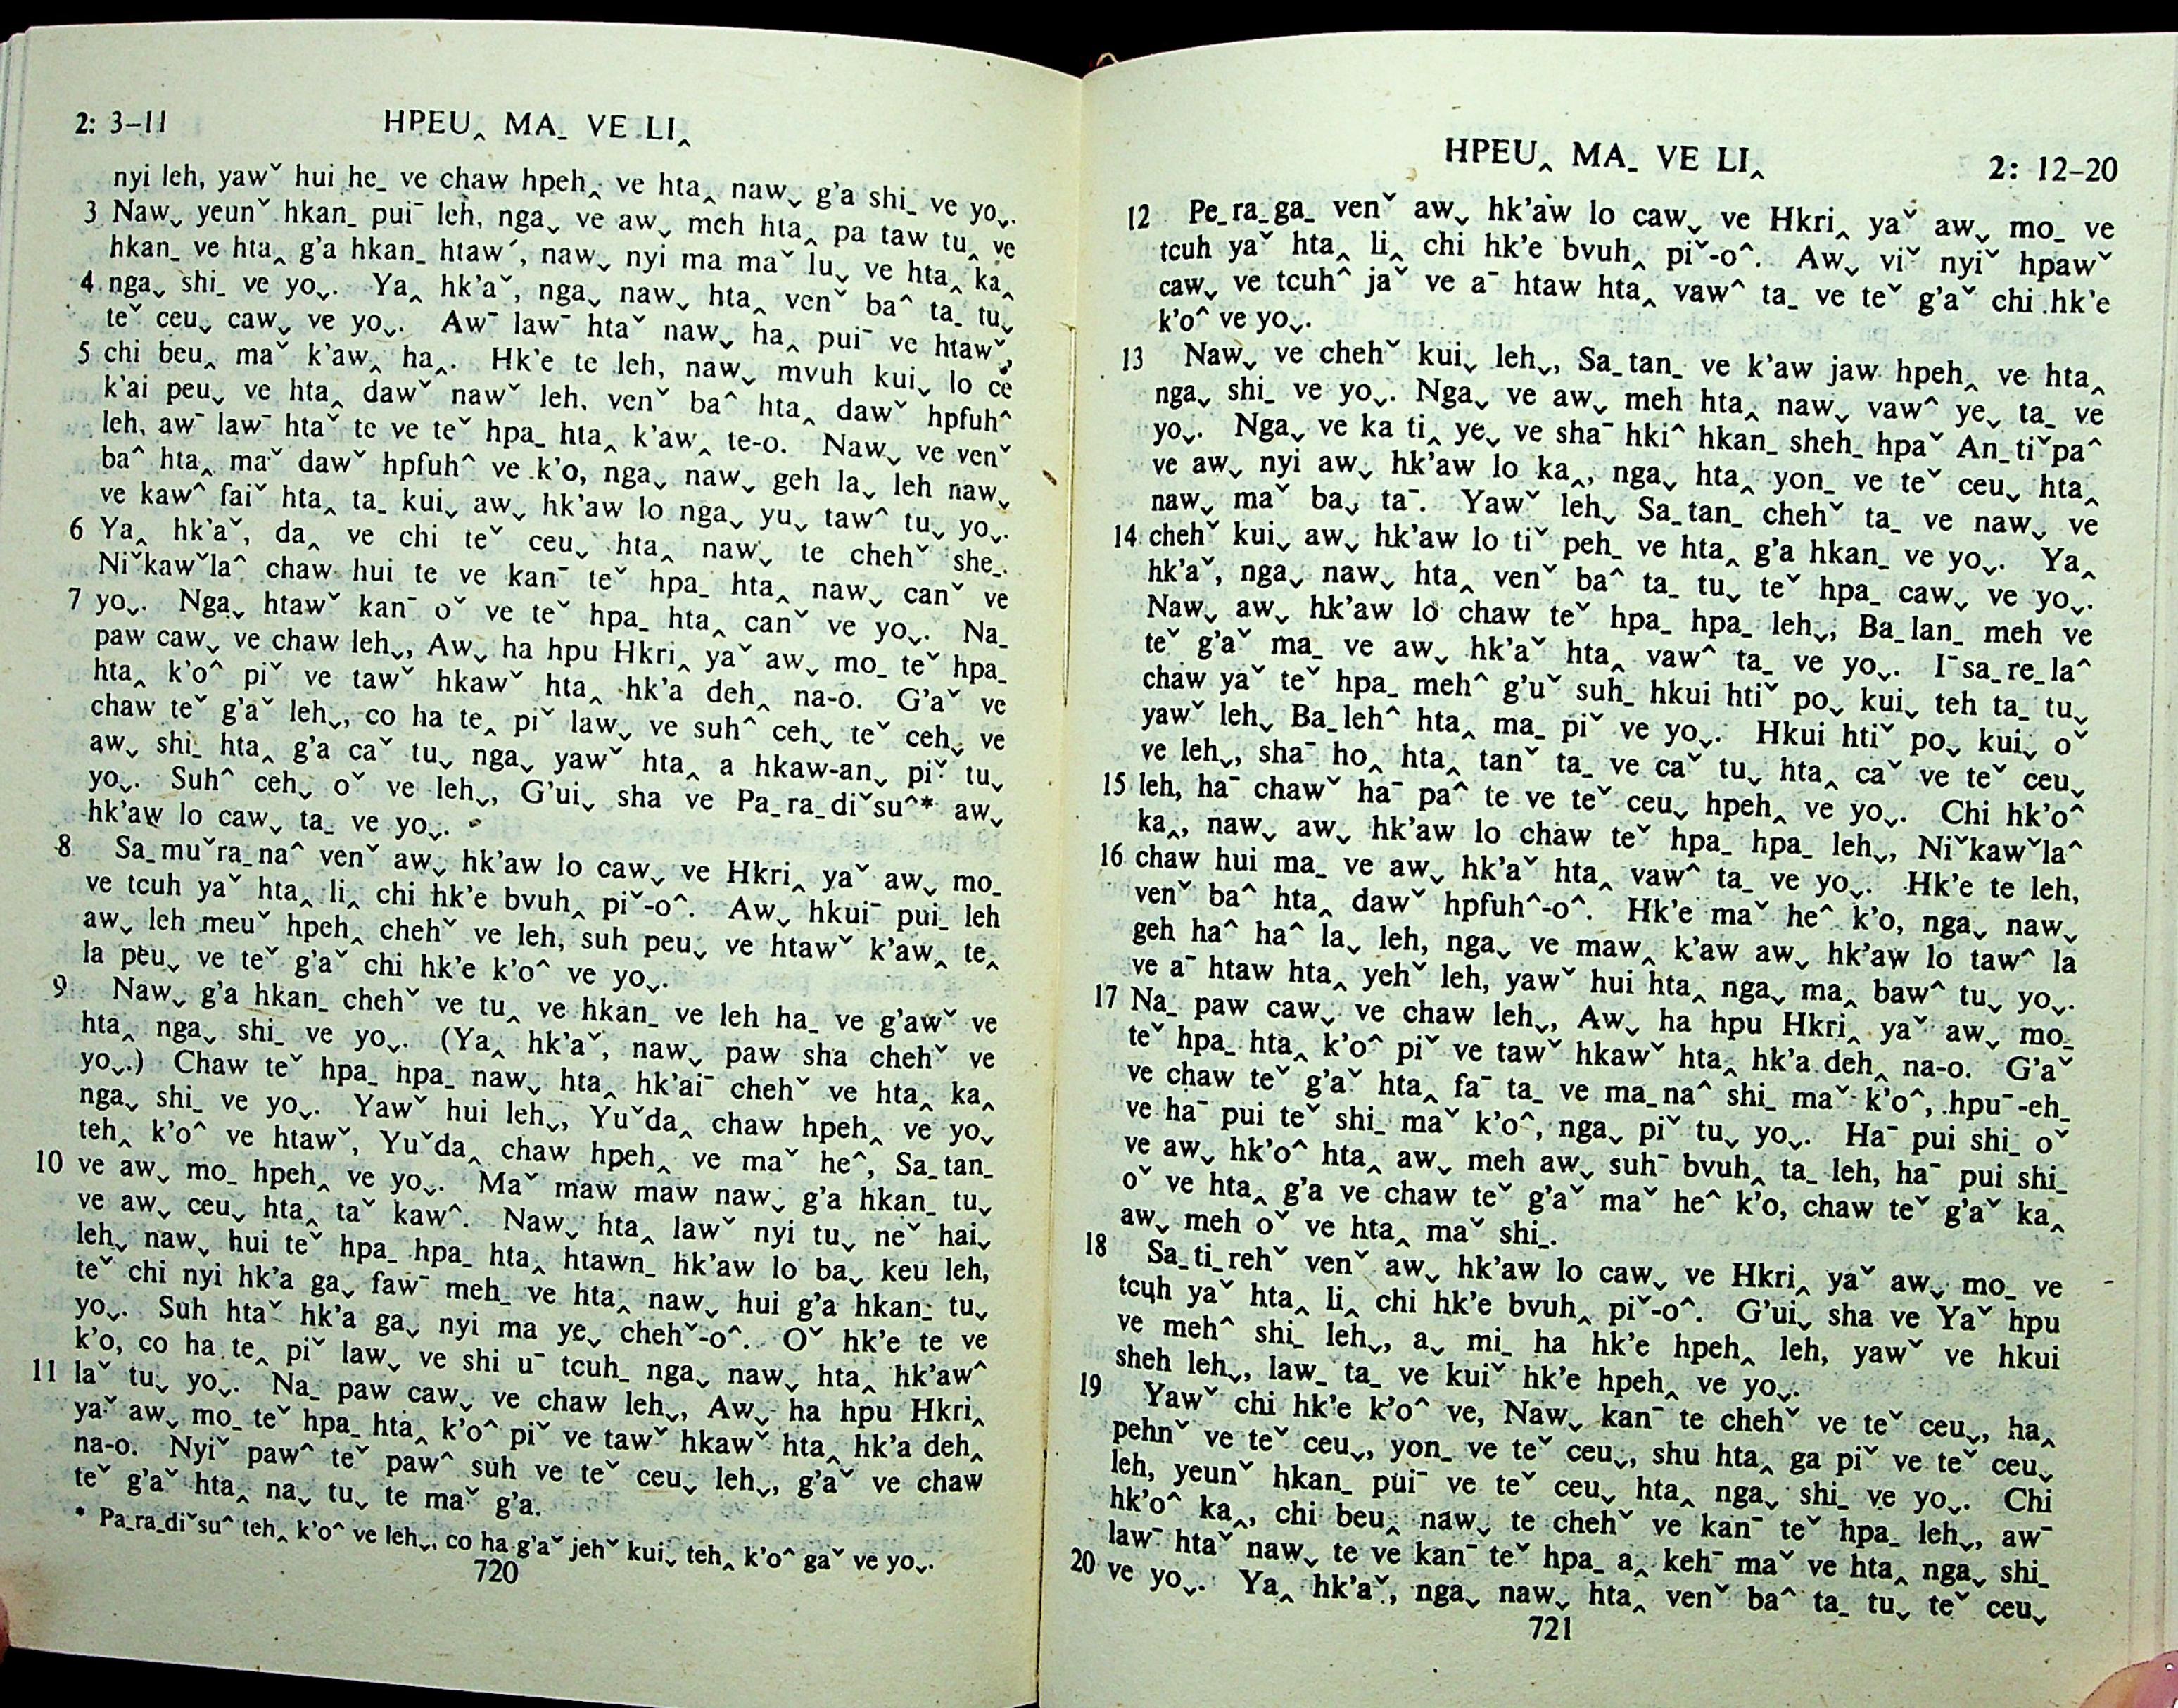 2: 3–11
HPEU‸ MA_ VE LI‸
nyi leh, yawˇ hui he_ ve chaw hpeh‸ ve hta‸ nawˬ g'a shi_ ve yoˬ.
3 Nawˬ yeunˇ hkan_ puiˉ leh, ngaˬ ve awˬ meh hta‸ pa taw tu‸ ve
hkan_ ve hta‸ g'a hkan_ htawˊ, nawˬ nyi ma maˇ luˬ ve hta‸ ka‸
4 ngaˬ shi_ ve yoˬ. Ya‸ hk'aˇ, ngaˬ nawˬ hta‸ venˇ ba^ ta_ tuˬ
teˇ ceuˬ cawˬ ve yoˬ. Awˉ lawˉ htaˇ nawˬ ha‸ puiˉ ve htawˇ,
5 chi beu‸ maˇ k'aw‸ ha‸. Hk'e te leh, nawˬ mvuh kuiˬ lo ce
k'ai peuˬ ve hta‸ dawˇ nawˇ leh, venˇ ba^ hta‸ dawˇ hpfuh^
leh, awˉ lawˉ htaˇ te ve teˇ hpa_ hta‸ k'aw‸ te-o. Nawˬ ve venˇ
ba^ hta‸ maˇ dawˇ hpfuh^ ve k'o, ngaˬ nawˬ geh laˬ leh nawˬ
ve kaw^ faiˇ hta‸ ta_ kuiˬ awˬ hk'aw lo ngaˬ yuˬ taw^ tuˬ yoˬ.
6 Ya‸ hk'aˇ, da‸ ve chi teˇ ceuˬ hta‸ nawˬ te chehˇ she_.
Niˇkawˇla^ chaw hui te ve kanˉ teˇ hpa_ hta‸ nawˬ canˇ ve
7 yoˬ. Ngaˬ htawˇ kanˉ oˇ ve teˇ hpa_ hta‸ canˇ ve yoˬ. Na_
paw cawˬ ve chaw lehˬ, Awˬ ha hpu Hkri‸ yaˇ awˬ mo_ teˇ hpa_
hta‸ k'o^ piˇ ve tawˇ hkawˇ hta‸ hk'a deh‸ na-o. G'aˇ ve
chaw teˇ g'aˇ lehˬ, co ha te‸ piˇ lawˬ ve suh^ cehˬ teˇ cehˬ ve
awˬ shi_ hta‸ g'a caˇ tuˬ ngaˬ yawˇ hta‸ a hkaw-anˬ piˇ tuˬ
yoˬ. Suh^ cehˬ oˇ ve lehˬ, G'uiˬ sha ve Pa_ra_diˇsu^* awˬ
hk'aw lo cawˬ ta_ ve yoˬ.
8 Sa_muˇra_na^ venˇ awˬ hk'aw lo cawˬ ve Hkri‸ yaˇ awˬ mo_
ve tcuh yaˇ hta‸ li‸ chi hk'e bvuh‸ piˇ-o^. Awˬ hkuiˉ pui_ leh
awˬ leh meuˇ hpeh‸ chehˇ ve leh, suh peuˬ ve htawˇ k'aw‸ te‸
la peuˬ ve teˇ g'aˇ chi hk'e k'o^ ve yoˬ.
9 Nawˬ g'a hkan_ chehˇ ve tu‸ ve hkan_ ve leh ha_ ve g'awˇ ve
hta‸ ngaˬ shi_ ve yoˬ. (Ya‸ hk'aˇ, nawˬ paw sha chehˇ ve
yoˬ.) Chaw teˇ hpa_ hpa_ nawˬ hta‸ hk'aiˉ chehˇ ve hta‸ ka‸
ngaˬ shi_ ve yoˬ. Yawˇ hui lehˬ, Yuˇda‸ chaw hpeh‸ ve yoˬ
teh‸ k'o^ ve htawˇ, Yuˇda‸ chaw hpeh‸ ve maˇ he^, Sa_tan_
10 ve awˬ mo_ hpeh‸ ve yoˬ. Maˇ maw maw nawˬ g'a hkan_ tuˬ
ve awˬ ceuˬ hta‸ taˇ kaw^. Nawˬ hta‸ lawˇ nyi tuˬ neˇ haiˬ
lehˬ nawˬ hui teˇ hpa_ hpa_ hta‸ htawn_ hk'aw lo baˬ keu leh,
teˇ chi nyi hk'a gaˬ fawˉ meh_ ve hta‸ nawˬ hui g'a hkan_ tuˬ
yoˬ. Suh htaˇ hk'a gaˬ nyi ma yeˬ chehˇ-o^. Oˇ hk'e te ve
k'o, co ha te‸ piˇ lawˬ ve shi uˉ tcuh_ ngaˬ nawˬ hta‸ hk'aw^
11 laˇ tuˬ yoˬ. Na_ paw cawˬ ve chaw lehˬ, Awˬ ha hpu Hkri‸
yaˇ awˬ mo_ teˇ hpa_ hta‸ k'o^ piˇ ve tawˇ hkawˇ hta‸ hk'a deh‸
na-o. Nyiˇ paw^ teˇ paw^ suh ve teˇ ceuˬ lehˬ, g'aˇ ve chaw
teˇ g'aˇ hta‸ naˬ tuˬ te maˇ g'a.
* Pa_ra_diˇsu^ teh‸ k'o^ ve lehˬ, co ha g'aˇ jehˇ kuiˬ teh‸ k'o^ gaˇ ve yoˬ.
720
HPEU‸ MA_ VE LI‸
2: 12–20
12 Pe_ra_ga_ venˇ awˬ hk'aw lo cawˬ ve Hkri‸ yaˇ awˬ mo_ ve
tcuh yaˇ hta‸ li‸ chi hk'e bvuh‸ piˇ-o^. Awˬ viˇ nyiˇ hpawˇ
cawˬ ve tcuh^ jaˇ ve aˉ htaw hta‸ vaw^ ta_ ve teˇ g'aˇ chi hk'e
k'o^ ve yoˬ.
13 Nawˬ ve chehˇ kuiˬ lehˬ, Sa_tan_ ve k'aw jaw hpeh‸ ve hta‸
ngaˬ shi_ ve yoˬ. Ngaˬ ve awˬ meh hta‸ nawˬ vaw^ yeˬ ta_ ve
yoˬ. Ngaˬ ve ka ti‸ yeˬ ve shaˉ hki^ hkan_ sheh_ hpaˇ An_tiˇpa^
ve awˬ nyi awˬ hk'aw lo ka‸, ngaˬ hta‸ yon_ ve teˇ ceuˬ hta‸
nawˬ maˇ baˬ taˉ. Yawˇ lehˬ Sa_tan_ chehˇ ta_ ve nawˬ ve
14 chehˇ kuiˬ awˬ hk'aw lo tiˇ peh_ ve hta‸ g'a hkan_ ve yoˬ. Ya‸
hk'aˇ, ngaˬ nawˬ hta‸ venˇ ba^ ta_ tuˬ teˇ hpa_ cawˬ ve yoˬ.
Nawˬ awˬ hk'aw lo chaw teˇ hpa_ hpa_ lehˬ, Ba_lan_ meh ve
teˇ g'aˇ ma_ ve awˬ hk'aˇ hta‸ vaw^ ta_ ve yoˬ. Iˉsa_re_la^
chaw yaˇ teˇ hpa_ meh^ g'uˇ suh_ hkui htiˇ poˬ kuiˬ teh ta_ tuˬ
yawˇ lehˬ Ba_leh^ hta‸ ma_ piˇ ve yoˬ. Hkui htiˇ poˬ kuiˬ oˇ
ve lehˬ, shaˉ ho‸ hta‸ tanˇ ta_ ve caˇ tuˬ hta‸ caˇ ve teˇ ceuˬ
15 leh, haˉ chawˇ haˉ pa^ te ve teˇ ceuˬ hpeh‸ ve yoˬ. Chi hk'o^
ka‸, nawˬ awˬ hk'aw lo chaw teˇ hpa_ hpa_ lehˬ, Niˇkawˇla^
16 chaw hui ma_ ve awˬ hk'aˇ hta‸ vaw^ ta_ ve yoˬ. Hk'e te leh,
venˇ ba^ hta‸ dawˇ hpfuh^-o^. Hk'e maˇ he^ k'o, ngaˬ nawˬ
geh ha^ ha^ laˬ leh, ngaˬ ve maw‸ k'aw awˬ hk'aw lo taw^ la
ve aˉ htaw hta‸ yehˇ leh, yawˇ hui hta‸ ngaˬ ma‸ baw^ tuˬ yoˬ.
17 Na_ paw cawˬ ve chaw lehˬ, Awˬ ha hpu Hkri‸ yaˇ awˬ mo_
teˇ hpa_ hta‸ k'o^ piˇ ve tawˇ hkawˇ hta‸ hk'a deh‸ na-o. G'aˇ
ve chaw teˇ g'aˇ hta‸ faˉ ta_ ve ma_na^ shi_ maˇ k'o^, hpuˉ-eh_
ve haˉ pui teˇ shi_ maˇ k'o^, ngaˬ piˇ tuˬ yoˬ. Haˉ pui shi_ oˇ
ve awˬ hk'o^ hta‸ awˬ meh awˬ suhˉ bvuh‸ ta_ leh, haˉ pui shi_
oˇ ve hta‸ g'a ve chaw teˇ g'aˇ maˇ he^ k'o, chaw teˇ g'aˇ ka‸
awˬ meh oˇ ve hta‸ maˇ shi_.
18 Sa_ti_rehˇ venˇ awˬ hk'aw lo cawˬ ve Hkri‸ yaˇ awˬ mo_ ve
tcuh yaˇ hta‸ li‸ chi hk'e bvuh‸ piˇ-o^. G'uiˬ sha ve Yaˇ hpu
ve meh^ shi_ lehˬ, aˬ mi_ ha hk'e hpeh‸ leh, yawˇ ve hkui
sheh lehˬ, law_ ta_ ve kuiˇ hk'e hpeh‸ ve yoˬ.
19 Yawˇ chi hk'e k'o^ ve, Nawˬ kanˉ te chehˇ ve teˇ ceuˬ, ha‸
pehnˇ ve teˇ ceuˬ, yon_ ve teˇ ceuˬ, shu hta‸ ga piˇ ve teˇ ceuˬ
leh, yeunˇ hkan_ puiˉ ve teˇ ceuˬ hta‸ ngaˬ shi_ ve yoˬ. Chi
hk'o^ ka‸, chi beu‸ nawˬ te chehˇ ve kanˉ teˇ hpa_ lehˬ, awˉ
lawˉ htaˇ nawˬ te ve kanˉ teˇ hpa_ a‸ kehˉ maˇ ve hta‸ ngaˬ shi_
20 ve yoˬ. Ya‸ hk'aˇ, ngaˬ nawˬ hta‸ venˇ ba^ ta_ tuˬ teˇ ceuˬ
721